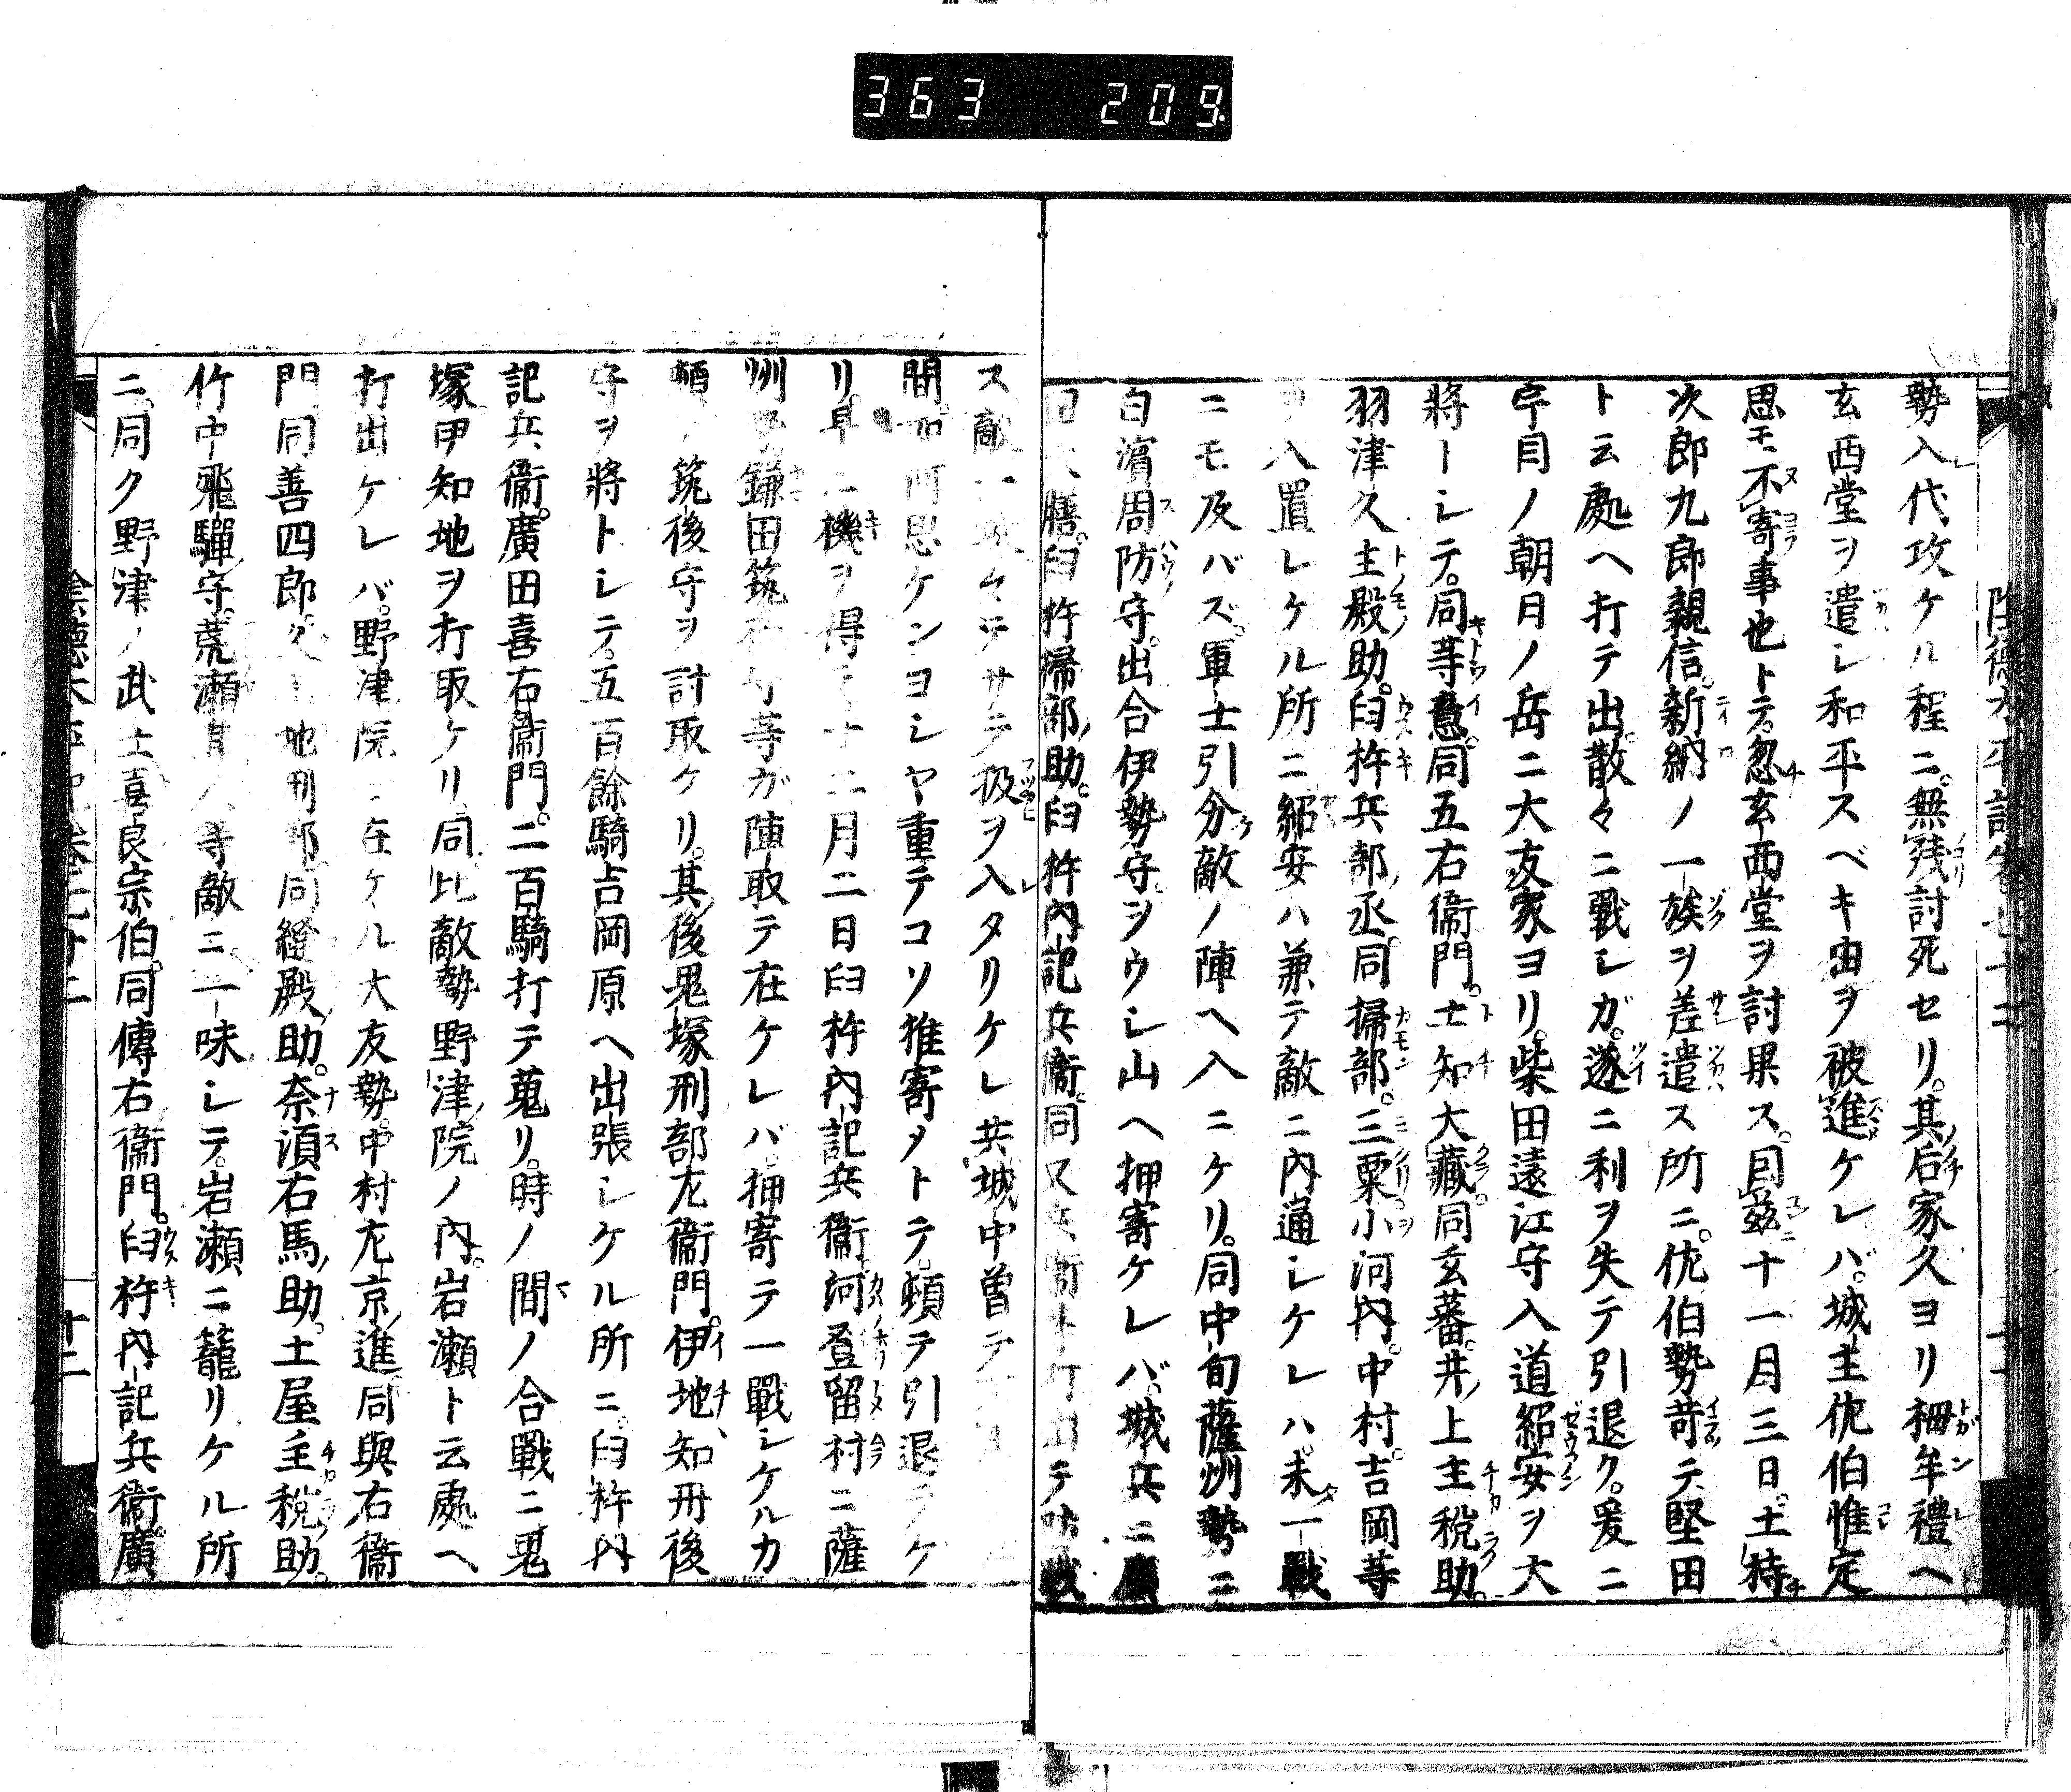 363 209
勢入代攻ケル程ニ。無残討死セリ。其后家久ヨリ栂牟禮ヘ
玄西堂ヲ遣シ和平スベキ由ヲ被進ケレバ。城主佐伯惟定
思モ不寄事也トテ。忽玄西堂ヲ討果ス。同茲十一月三日。土持
次郎九郎親信。新納ノ一族ヲ差遣ス所ニ。佐伯勢苛テ堅田
ト云處ヘ打テ出。散々ニ戰シガ。遂ニ利ヲ失テ引退ク。爰ニ
宇目ノ朝日ノ岳ニ大友家ヨリ。柴田遠江守入道紹安ヲ大
將トシテ。同等意。同五右衞門。土知大藏。同玄蕃。井上主税助。
羽津久主殿助。臼杵兵部丞。同掃部。三栗小河内。中村。吉岡等
ヲ入置レケル所ニ紹安ハ兼テ敵ニ内通シケレハ。未一戰
ニモ及バズ。軍士引分敵ノ陣ヘ入ニケリ。同中旬薩州勢ニ
白濱周防守。出合伊勢守ヲシウシ山ヘ押寄ケレバ。城兵ニ廣
田大膳。臼杵掃部助。臼杵内記兵衞。同又兵衞ト打出テ防戰
ス敵
ヲ入タリケレ共。城中曽テ
間 何思ケンヨシヤ重テコソ推寄メトテ。頓テ引退ラケ
リ。早ニ機ヲ得 十二月二日臼杵内記兵衞河登留村ニ薩
州 鎌田筑 等ガ陣取テ在ケレバ。押寄テ一戰シケルカ
頓 筑後守ヲ討取ケリ。其後鬼塚刑部左衞門。伊地知丹後
守ヲ將トシテ。五百餘騎吉岡原ヘ出張シケル所ニ。臼杵内
記兵衞。廣田喜右衞門。二百騎打テ蒐リ。時ノ間ノ合戰ニ鬼
塚甲知地ヲ打取ケリ。同比敵勢野津院ノ内。岩瀬ト云處ヘ
打出ケレバ。野津院ニ在ケル大友勢。中村左京進。同與右衞
門同善四郎。 地刑部。同縫殿助。奈須右馬助。土屋主税助。
竹中飛騨守。荒瀬 八等敵ニ一味シテ。岩瀬ニ籠リケル所
ニ。同ク野津ノ武士喜良宗伯。同傳右衞門。臼杵内記兵衞。廣
十二